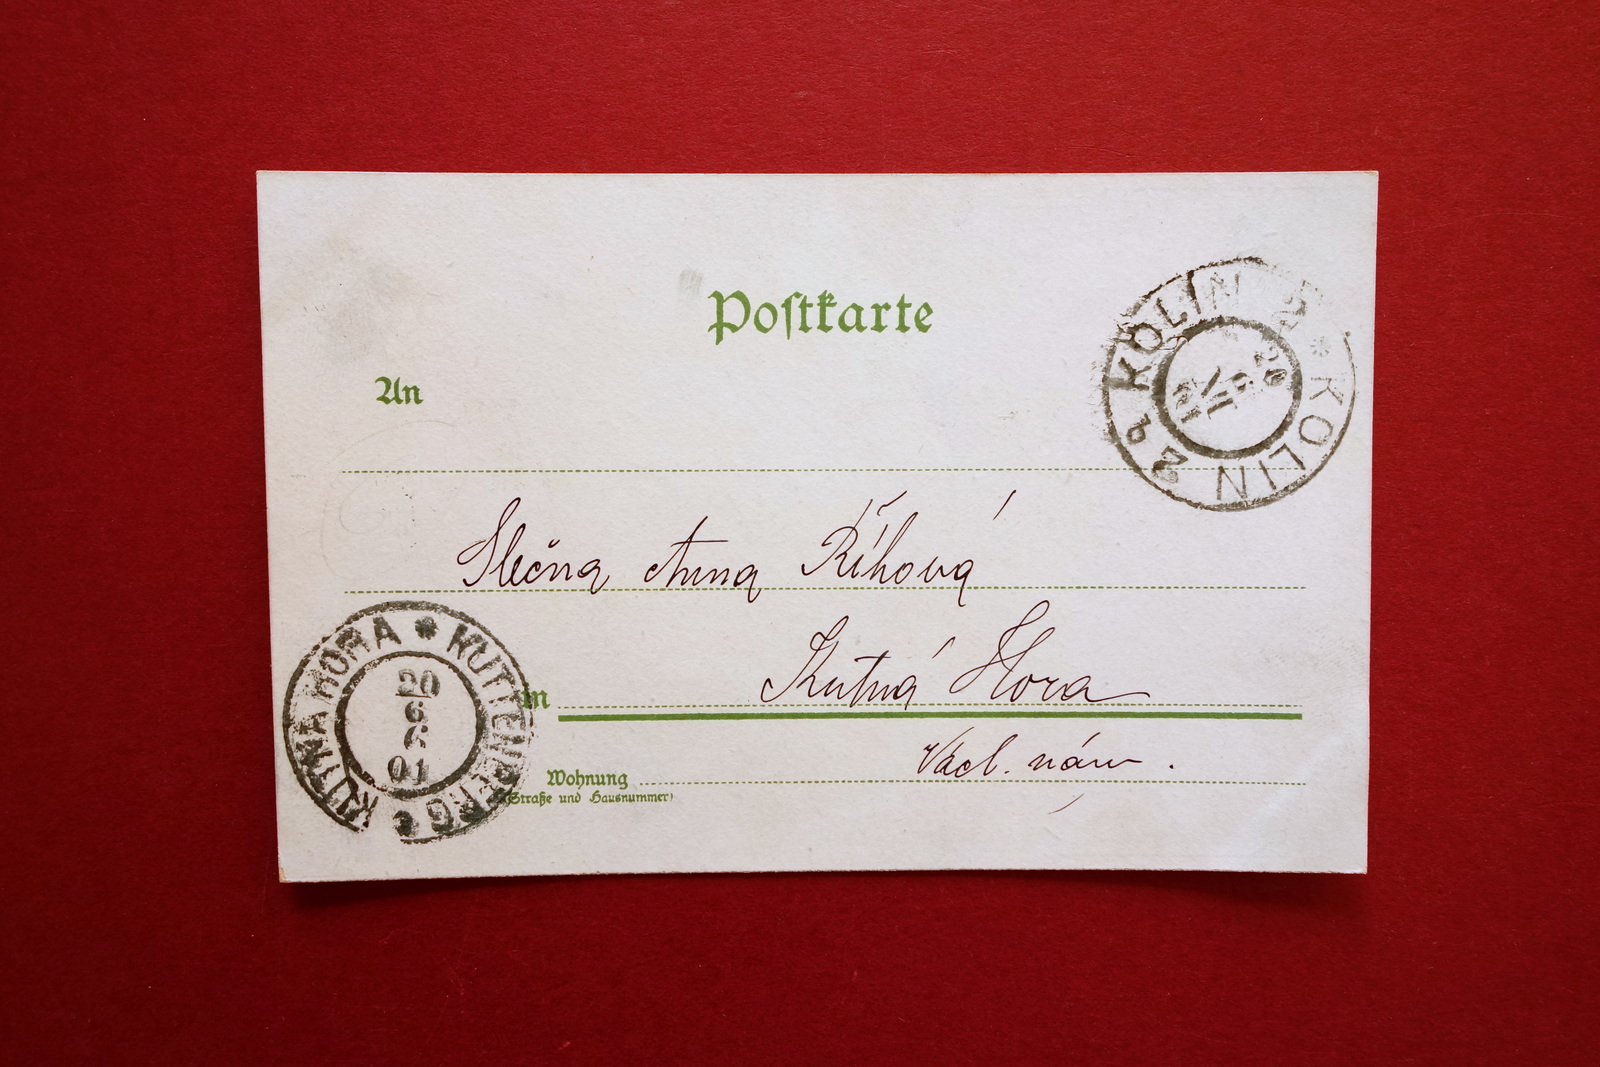 Postkarte
An
KOLIN 2 * KOLIN 2 b
Slečna Anna Říhová
in Kutná Hora
Václ. nám.
Wohnung
(Straße und Hausnummer)
KUTNÁ HORA * KUTTENBERG c
20
6
01